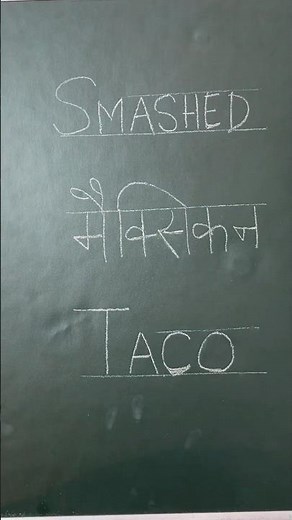 SMASHED
मैक्सिकन
TACO